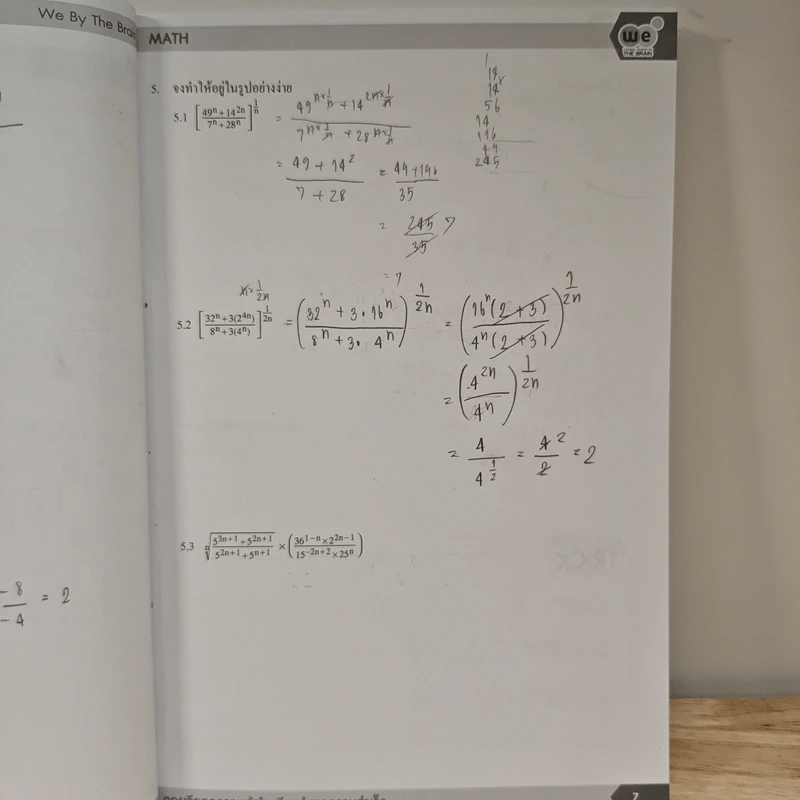 We By The Brain
MATH
we
THE BRAIN
5. จงทำให้อยู่ในรูปอย่างง่าย
5.1 [(49ⁿ + 14²ⁿ)/(7ⁿ + 28ⁿ)]^(1/n) = (49^(n×1/n) + 14^(2n×1/n))/(7^(n×1/n) + 28^(n×1/n))
14
14×
56
14
196
49
245
= (49 + 14²)/(7 + 28) = (49+196)/35
= 245/35 7
= 7
n×1/2n
5.2 [(32ⁿ+3(2⁴ⁿ))/(8ⁿ+3(4ⁿ))]^(1/2n) = ((32ⁿ + 3·16ⁿ)/(8ⁿ + 3·4ⁿ))^(1/2n) = (16ⁿ(2+3)/4ⁿ(2+3))^(1/2n)
= (4²ⁿ/4ⁿ)^(1/2n)
= 4/4^(1/2) = 4/2 2 = 2
5.3 ⁿ√((5³ⁿ⁺¹+5²ⁿ⁺¹)/(5²ⁿ⁺¹+5ⁿ⁺¹)) × ((36¹⁻ⁿ×2²ⁿ⁻¹)/(15⁻²ⁿ⁺²×25ⁿ))
-8/-4 = 2
7